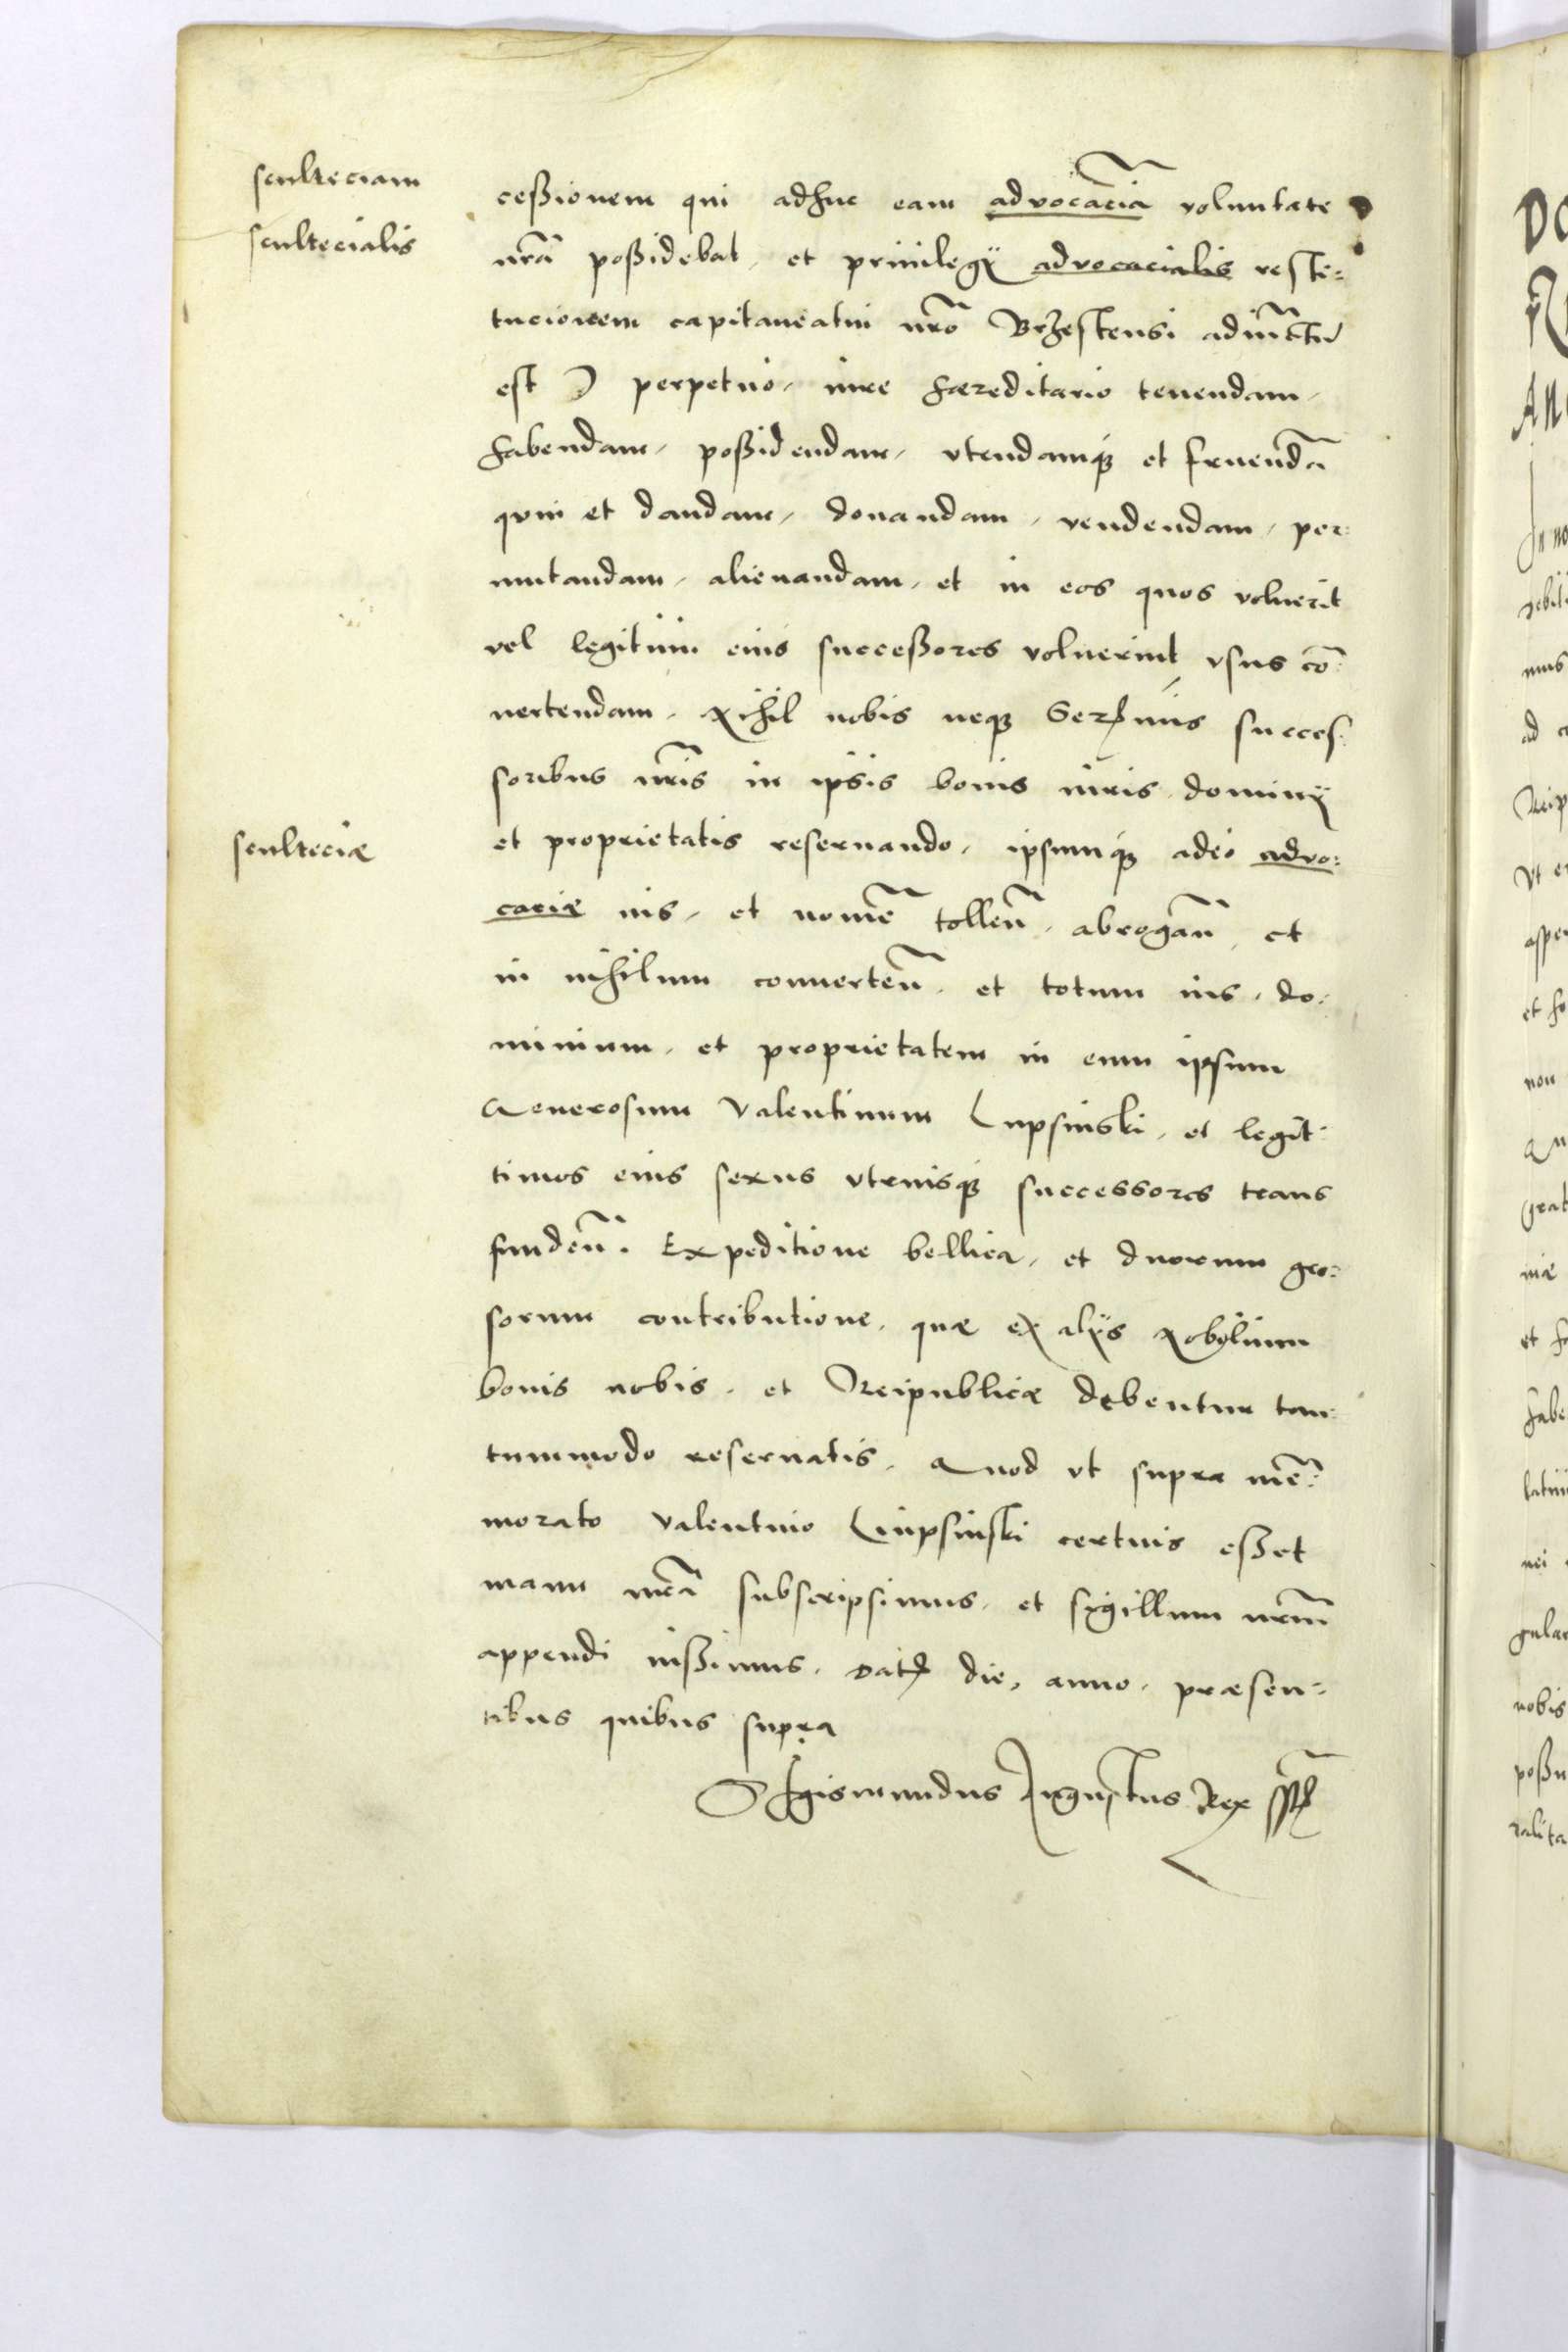 sculteciam
scultecialis
ceßionem qui adhuc eam advocaciã voluntate
nrã poßidebat, et priuilegÿ advocacialis resti=
tucionem capitaneatui nrõ Brzestensi adiũctũ
est perpetuo, iure hæreditario tenendam,
habendam, poßidendam, vtendamq3 et fruendã
quin et dandam, donandam, vendendam, per=
mutandam, alienandam, et in eos quos voluerit
vel legitimi eius succeßores voluerint vsus cõ=
uertendam, Nihil nobis neq3 Serẽmis succes=
soribus nris in ipsis bonis iuris, dominÿ
et proprietatis reseruando, ipsumq3 adeo advo=
sculteciæ
caciæ ius, et nomẽ tolleñ, abrogañ, et
in nihilum conuerteñ, et totum ius, do=
minium, et proprietatem in eum ipsum
Generosum Valentinum Lupsinski, et legit=
timos eius sexus vtriusq3 successores trans
fundeñ. Expeditione bellica, et duorum gro=
sorum contributione, quæ ex alÿs Nobilium
bonis nobis, et Reipublicæ debentur tan=
tummodo reseruatis. Quod vt supra mẽ=
morato Valentino Lupsinski certius eßet
manu nrã subscripsimus, et sigillum nrm̃
appendi iußimus. Dat̃ die, anno, præsen=
tibus quibus supra
Sigismundus Augustus Rex sspt